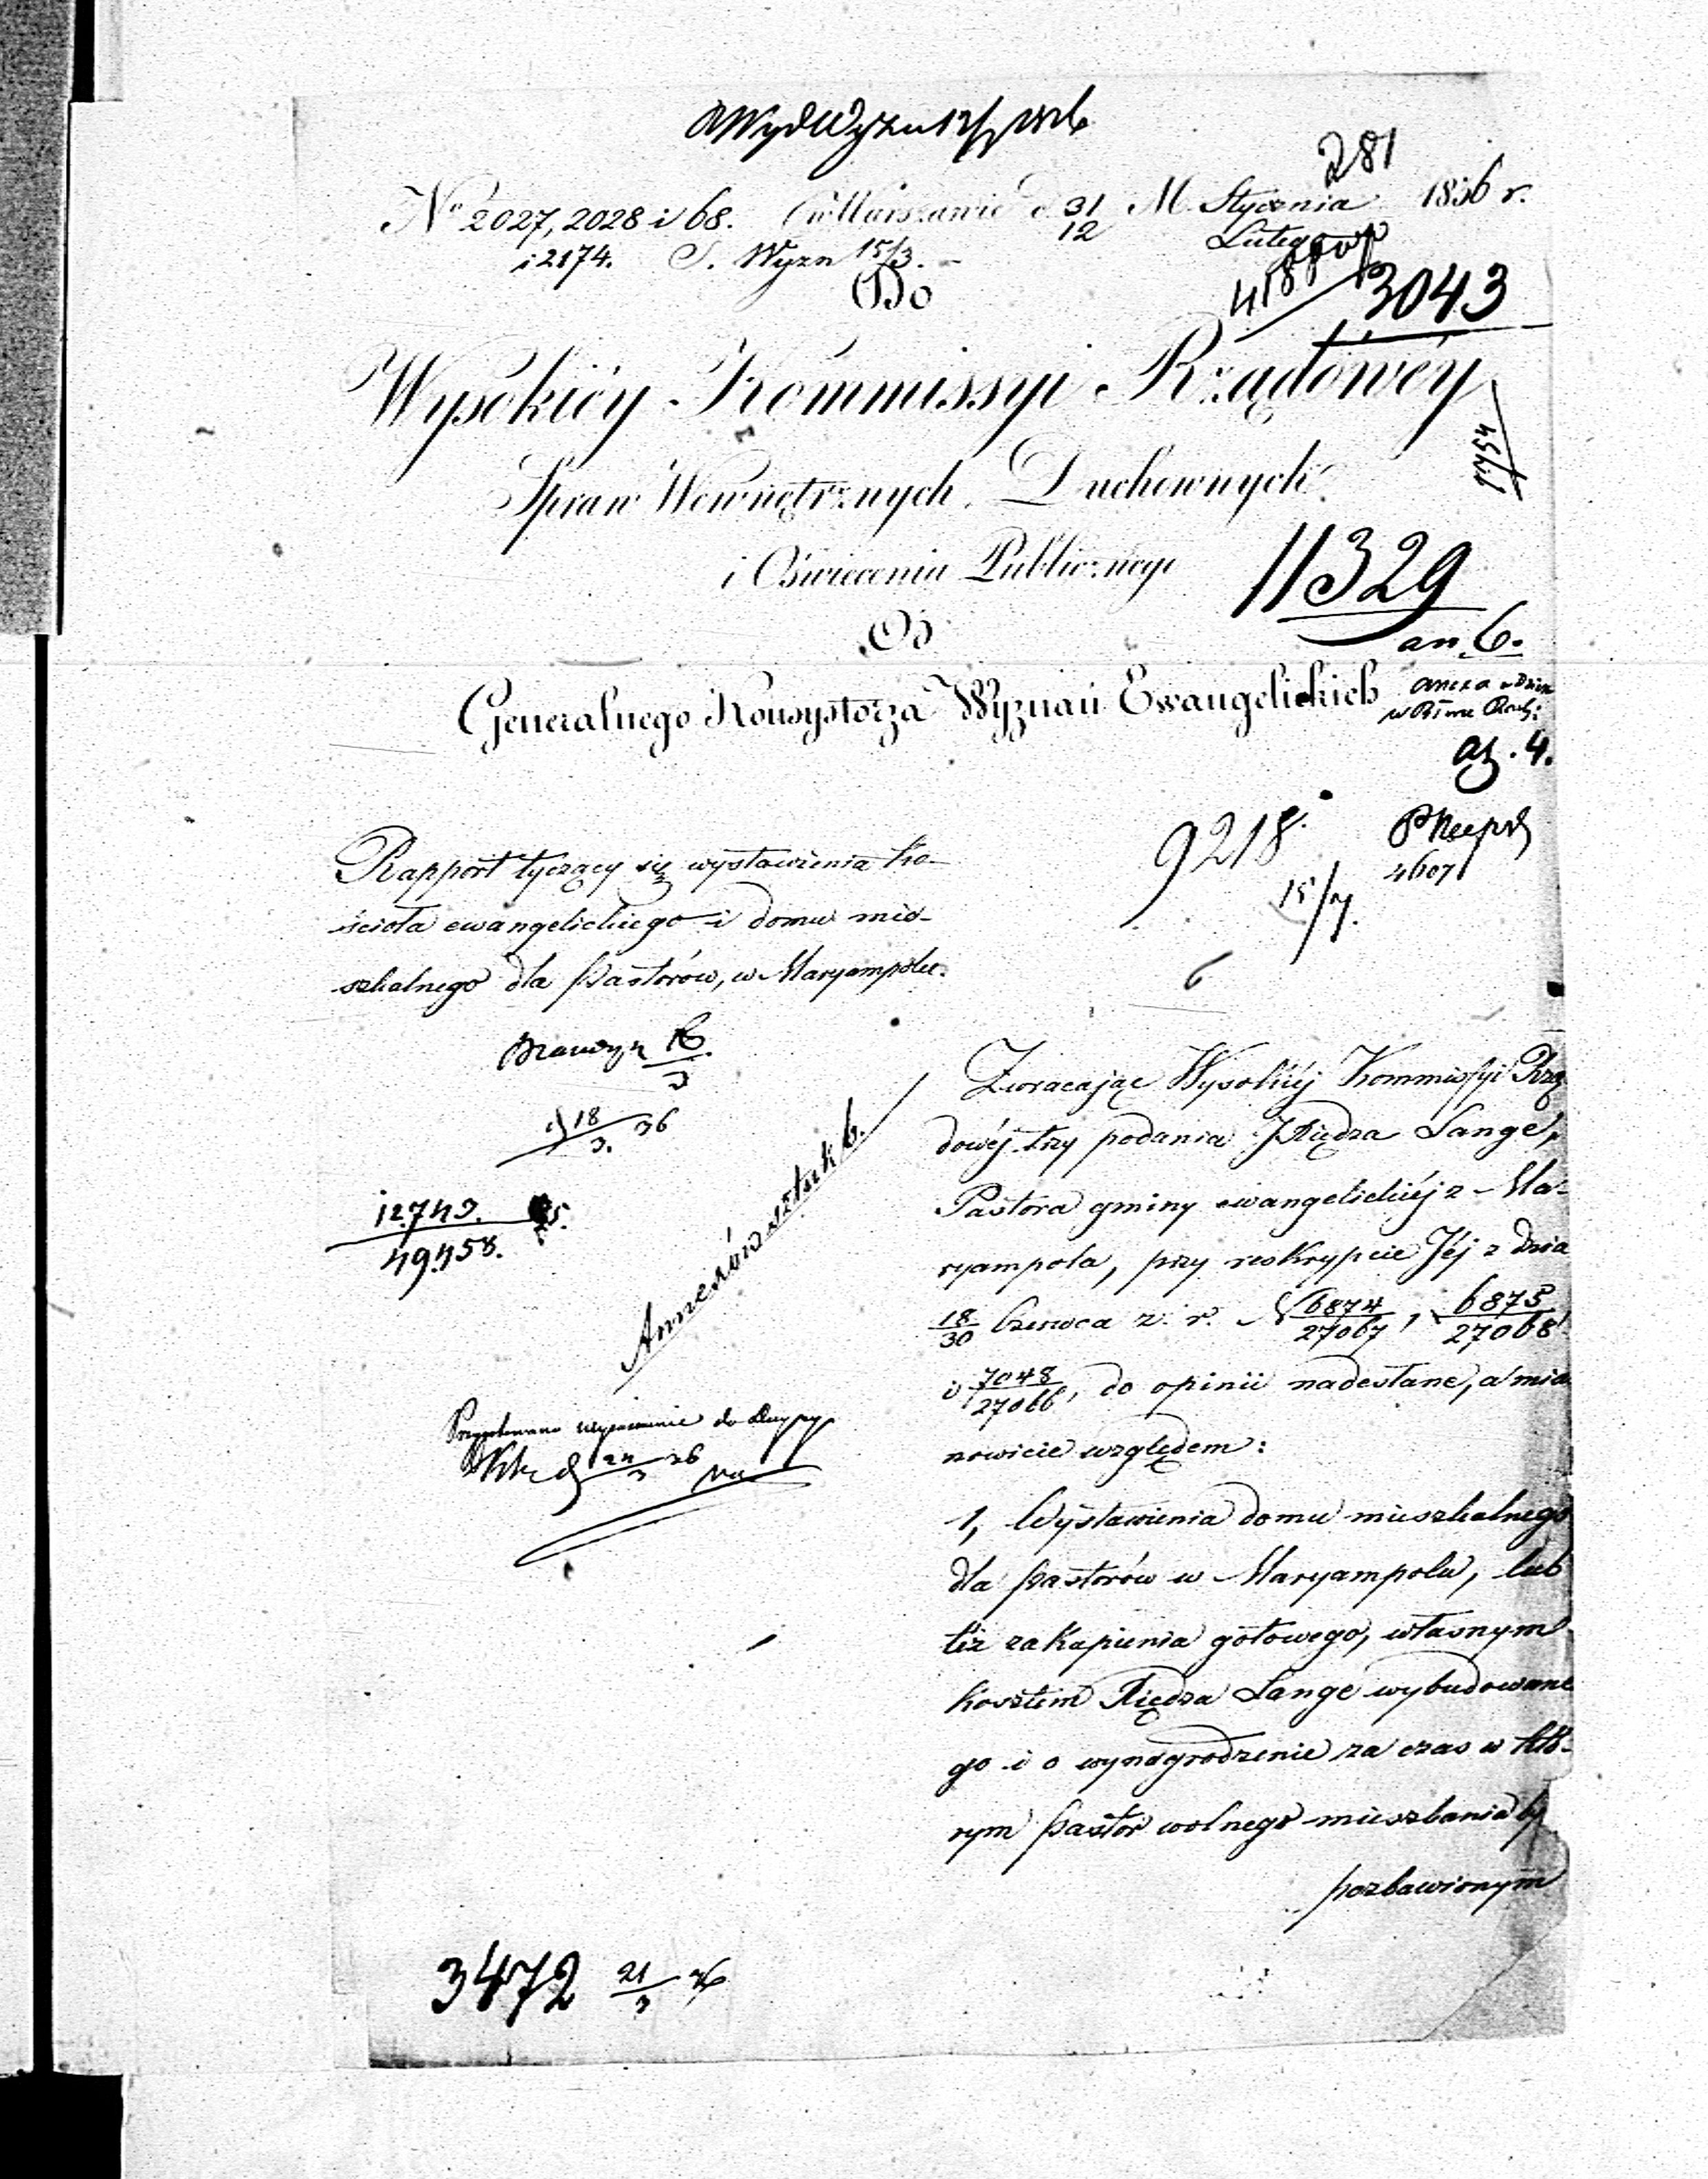 281
No 2027, 2028 i 68. w Warszawie d. 31 M. Stycznia 1836 r.
12 Lutego
i 2174. S. Wyzn 15/3.
Do
3043
Wysokiéy Kommissyi Rządowéy
Spraw Wewnętrznych, Duchownych
i Oświecenia Publicznego
11329
Od
an. 6.
Generalnego Konsystorza Wyznań Ewangelickich
9218.
4607
15/4.
Rapport tyczący się wystawienia ko-
ścioła ewangelickiego i domu mie-
szkalnego dla Pastorów, w Maryampolu.
6
18/3. 36
12743.
49458.
Annexów sztuk 6.
24/3 36
Zwracając Wysokiéj Kommissyi Rzą
dowéj trzy podania Xiędza Lange,
Pastora gminy ewangelickiéj z Ma-
ryampola, przy reskrypcie Jéj z dnia
18/30 Czerwca z. r. N 6874/27067, 6875/27068
i 7048/27066, do opinii nadesłane, a mia
nowicie względem:
1, Wystawienia domu mieszkalnego
dla Pastorów w Maryampolu, lub
też zakupienia gotowego, własnym
kosztem Xiędza Lange wybudowane
go i o wynagrodzenie za czas w któ-
rym Pastor wolnego mieszkania by
pozbawionym
3472 21/3 36